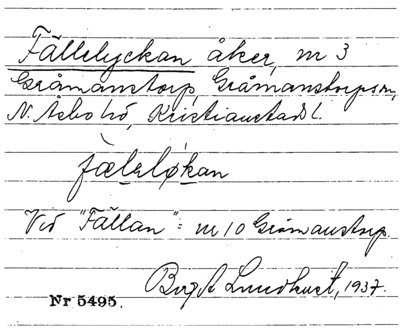 Fällelyckan åker, nr 3
Gråmanstorp, Gråmanstorps sn,
N. Åsbo hd, Kristianstads l.
fæleløkan
Vid "Fällan" = nr 10 Gråmanstorp.
Birgit Lundkvist, 1937.
Nr 5495.